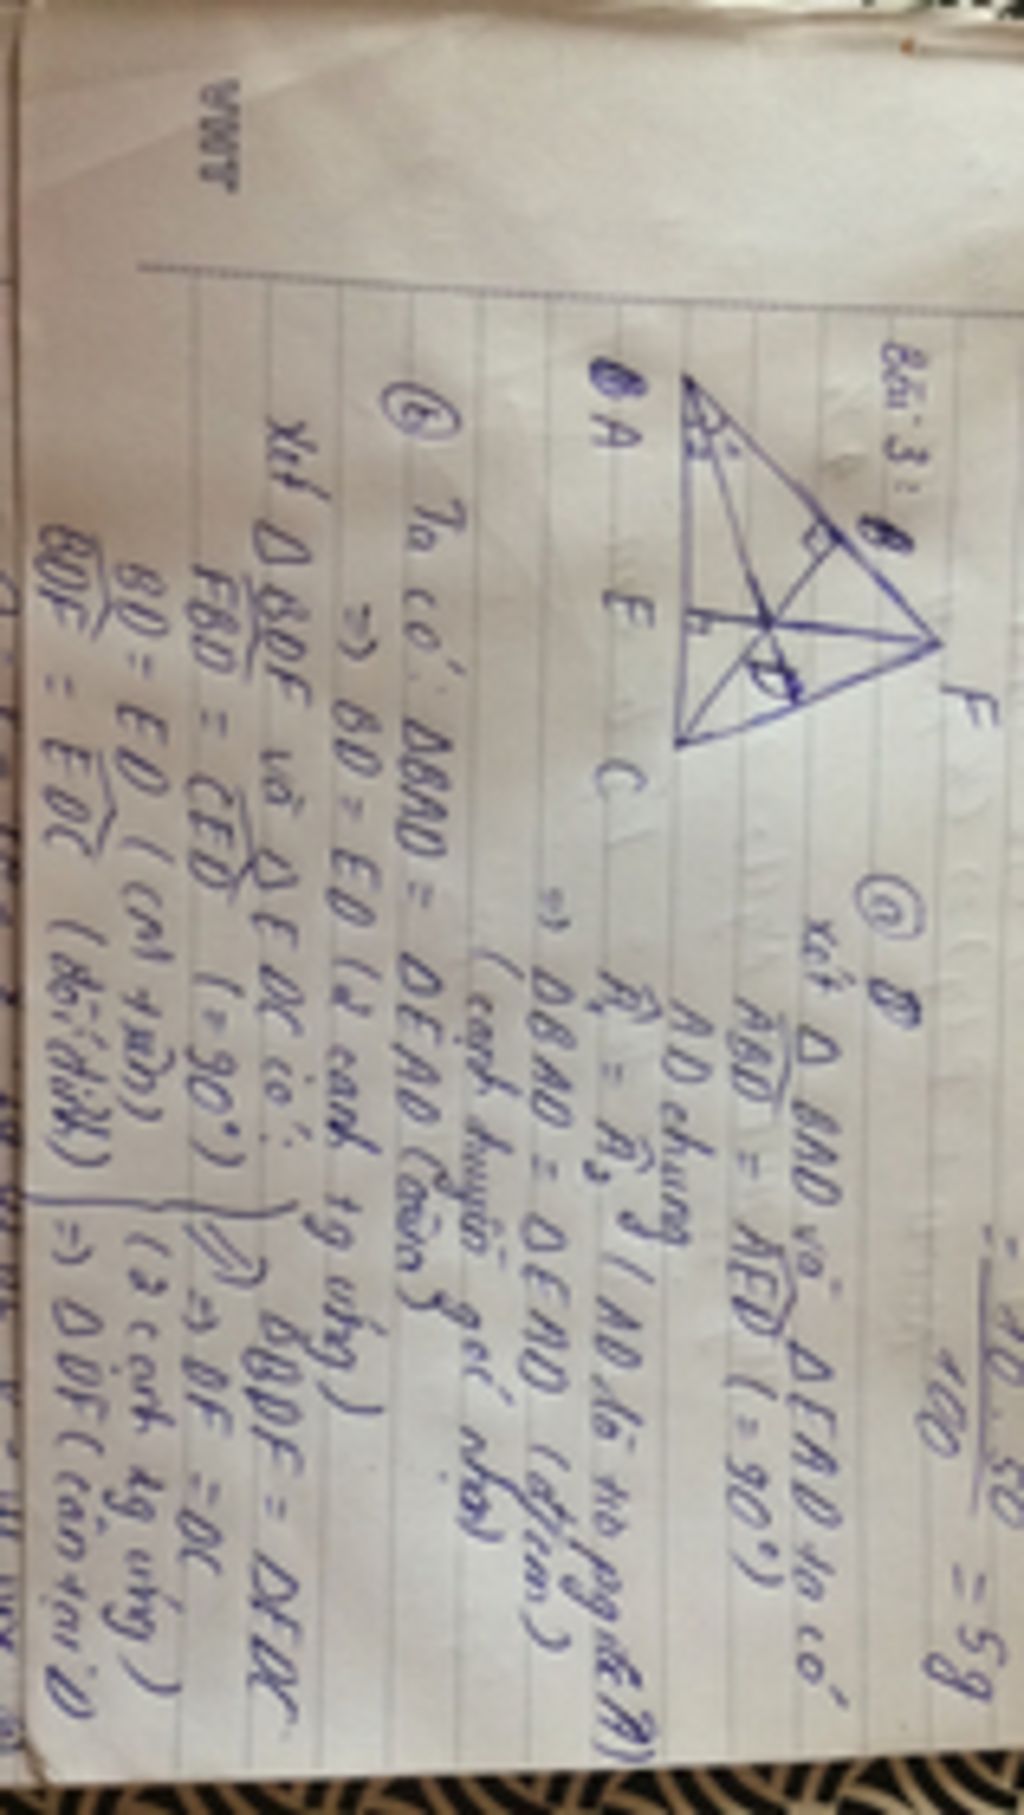 = 10.50 / 100 = 5g
Bài 3:
F
B
D
A E C
ⓐ
xét Δ BAD và ΔEAD ta có
ABD = AED (= 90°)
AD chung
Â₁ = Â₂ (AD là tia pg của Â)
=> ΔBAD = ΔEAD (đpcm)
(cạnh huyền góc nhọn)
ⓑ Ta có: ΔBAD = ΔEAD (câu a)
=> BD = ED (2 cạnh tg ứng)
xét Δ BDF và Δ EDC có:
FBD = CED (= 90°)
BD = ED (cm trên)
BDF = EDC (đối đỉnh)
=> ΔBDF = ΔEDC
=> DF = DC
(2 cạnh tg ứng)
=> Δ DFC cân tại D
VNNT